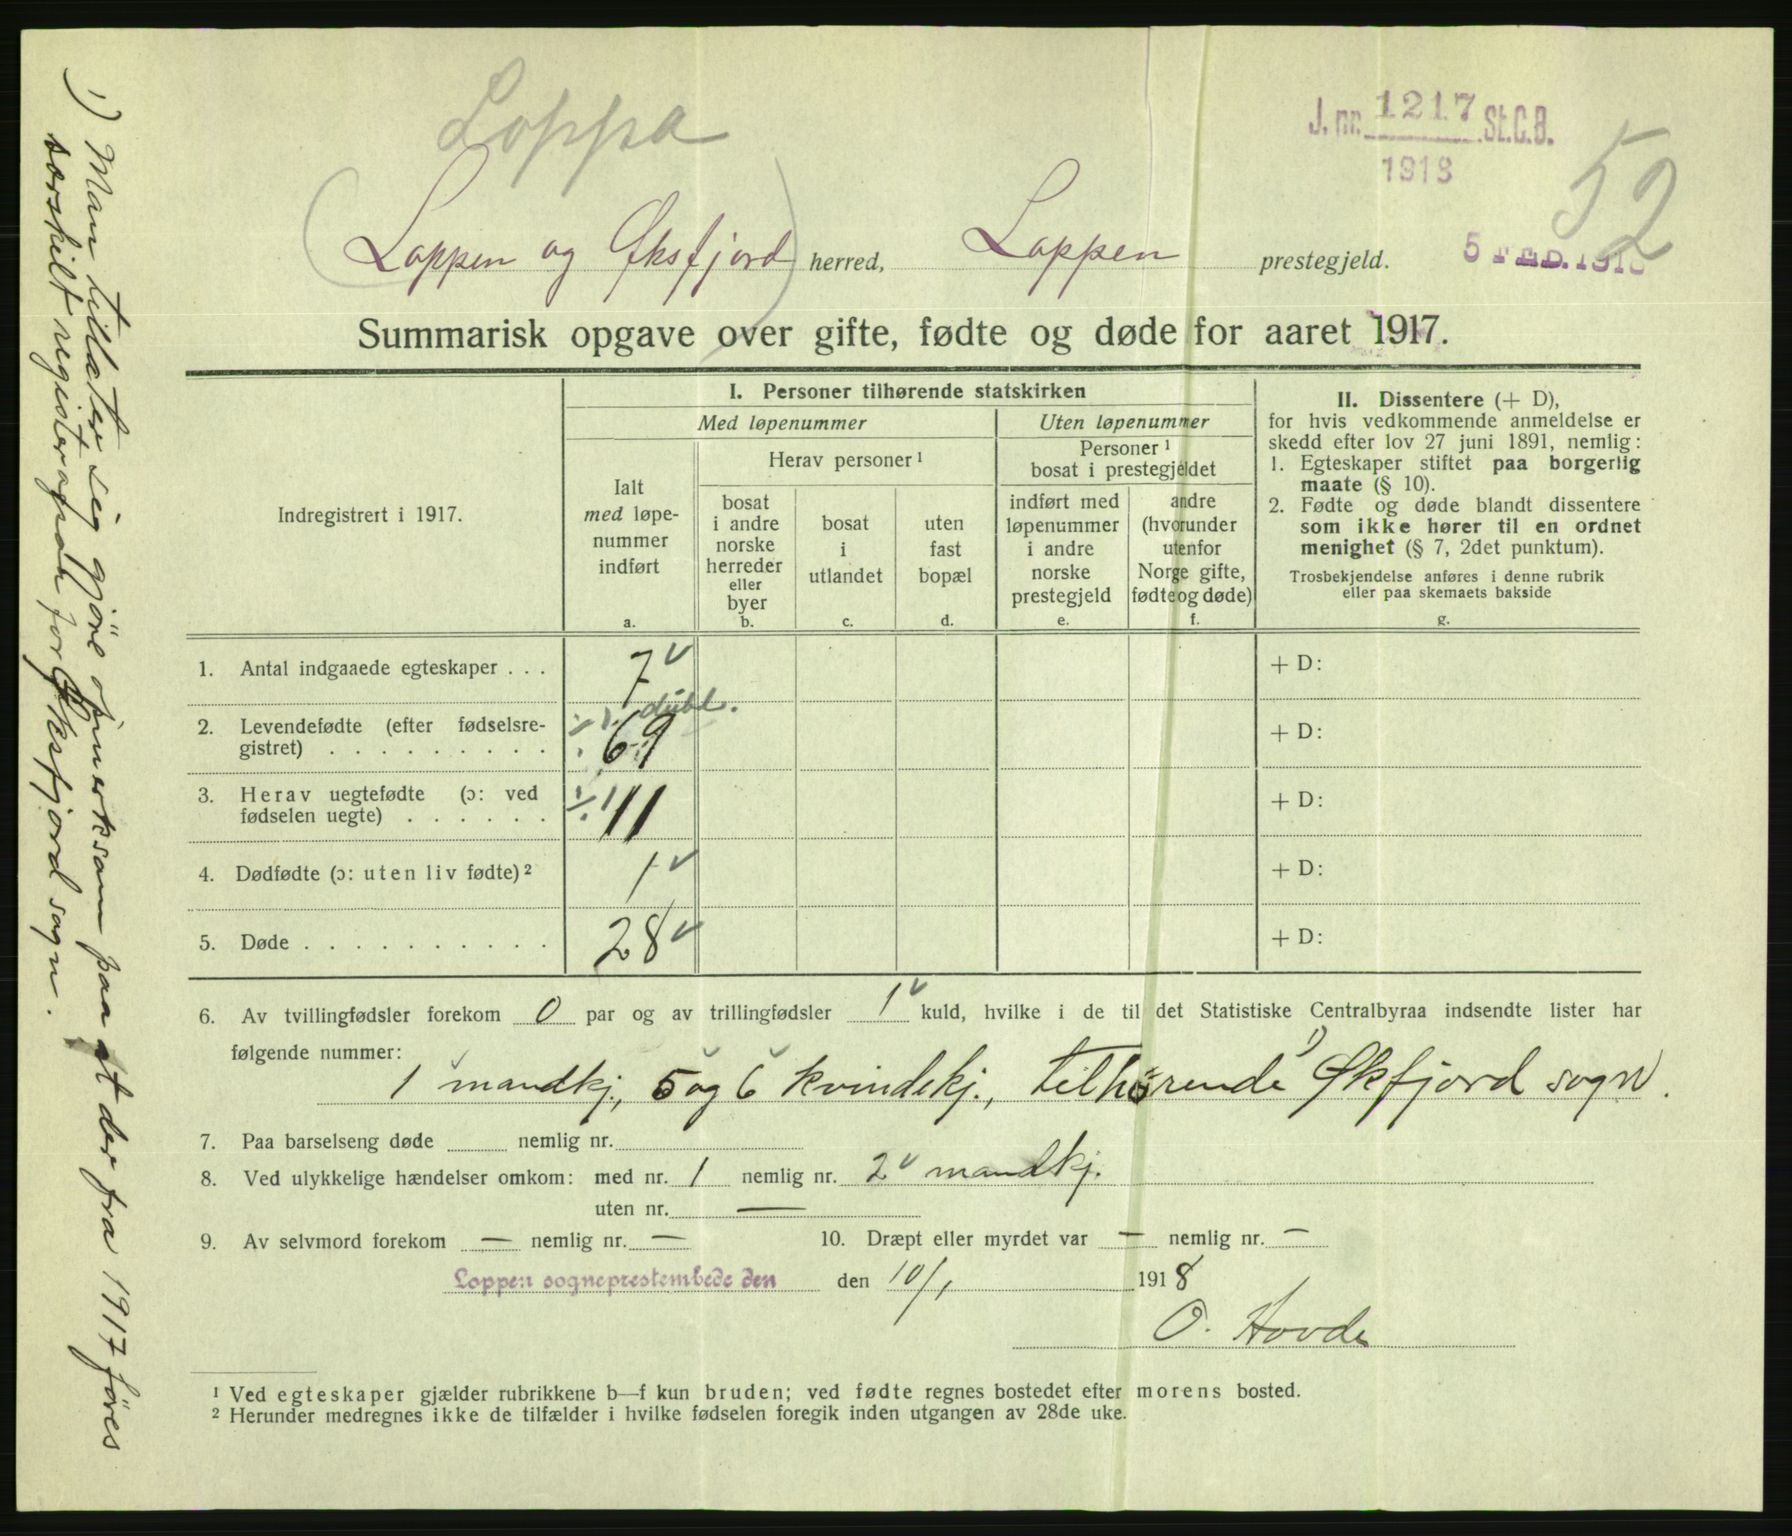 Loppa
J. nr. 1217 St.C.B.
1918
52
Loppen og Øksfjord herred, Loppen prestegjeld.
5 FEB. 1918
Summarisk opgave over gifte, fødte og døde for aaret 1917.
Indregistrert i 1917.
I. Personer tilhørende statskirken
Med løpenummer
Uten løpenummer
Ialt
med løpe-
nummer
indført
a.
Herav personer ¹
bosat
i andre
norske
herreder
eller
byer
b.
bosat
i
utlandet
c.
uten
fast
bopæl
d.
Personer ¹
bosat i prestegjeldet
indført med
løpenummer
i andre
norske
prestegjeld
e.
andre
(hvorunder
utenfor
Norge gifte,
fødte og døde)
f.
II. Dissentere (+ D),
for hvis vedkommende anmeldelse er
skedd efter lov 27 juni 1891, nemlig:
1. Egteskaper stiftet paa borgerlig
maate (§ 10).
2. Fødte og døde blandt dissentere
som ikke hører til en ordnet
menighet (§ 7, 2det punktum).
Trosbekjendelse anføres i denne rubrik
eller paa skemaets bakside
g.
1. Antal indgaaede egteskaper . . . 7 ✓ + D:
÷ 1 dubl.
2. Levendefødte (efter fødselsre-
gistret) . . . . . . . . . 69 + D:
3. Herav uegtefødte (ɔ: ved
fødselen uegte) . . . . . . ÷ 1 11 + D:
4. Dødfødte (ɔ: uten liv fødte) ² 1 ✓ + D:
5. Døde . . . . . . . . . . 28 ✓ + D:
6. Av tvillingfødsler forekom 0 par og av trillingfødsler 1 ✓ kuld, hvilke i de til det Statistiske Centralbyraa indsendte lister har
følgende nummer:
1 mandkj., 5 og 6 kvindekj., tilhörende ¹) Øksfjord sogn.
7. Paa barselseng døde nemlig nr.
8. Ved ulykkelige hændelser omkom: med nr. 1 nemlig nr. 2 ✓ mandkj.
uten nr. —
9. Av selvmord forekom — nemlig nr. — 10. Dræpt eller myrdet var — nemlig nr. —
Loppen sogneprestembede den den 10/1 1918
O. Hovde
¹ Ved egteskaper gjælder rubrikkene b—f kun bruden; ved fødte regnes bostedet efter morens bosted.
² Herunder medregnes ikke de tilfælder i hvilke fødselen foregik inden utgangen av 28de uke.
¹) Man tillater sig gjöre opmerksom paa at der fra 1917 föres
særskilt registerafskr. for Øksfjord sogn.